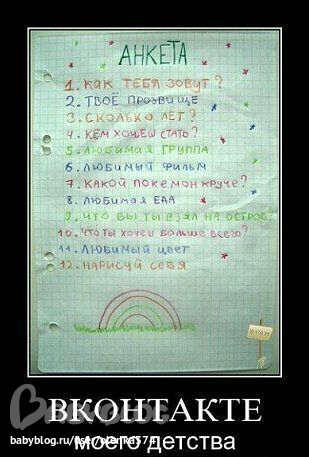 АНКЕТА
1. КАК ТЕБЯ ЗОВУТ?
2. ТВОЁ ПРОЗВИЩЕ
3. СКОЛЬКО ЛЕТ?
4. КЕМ ХОЧЕШ СТАТЬ?
5. ЛЮБИМАЯ ГРУППА
6. ЛЮБИМЫЙ ФИЛЬМ
7. КАКОЙ ПОКЕМОН КРУЧЕ?
8. ЛЮБИМАЯ ЕДА
9. ЧТО БЫ ТЫ ВЗЯЛ НА ОСТРОВ?
10. ЧТО ТЫ ХОЧЕШ БОЛЬШЕ ВСЕГО?
11. ЛЮБИМЫЙ ЦВЕТ
12. НАРИСУЙ СЕБЯ
ВКОНТАКТЕ
babyblog.ru/user/olenka574
моего детства